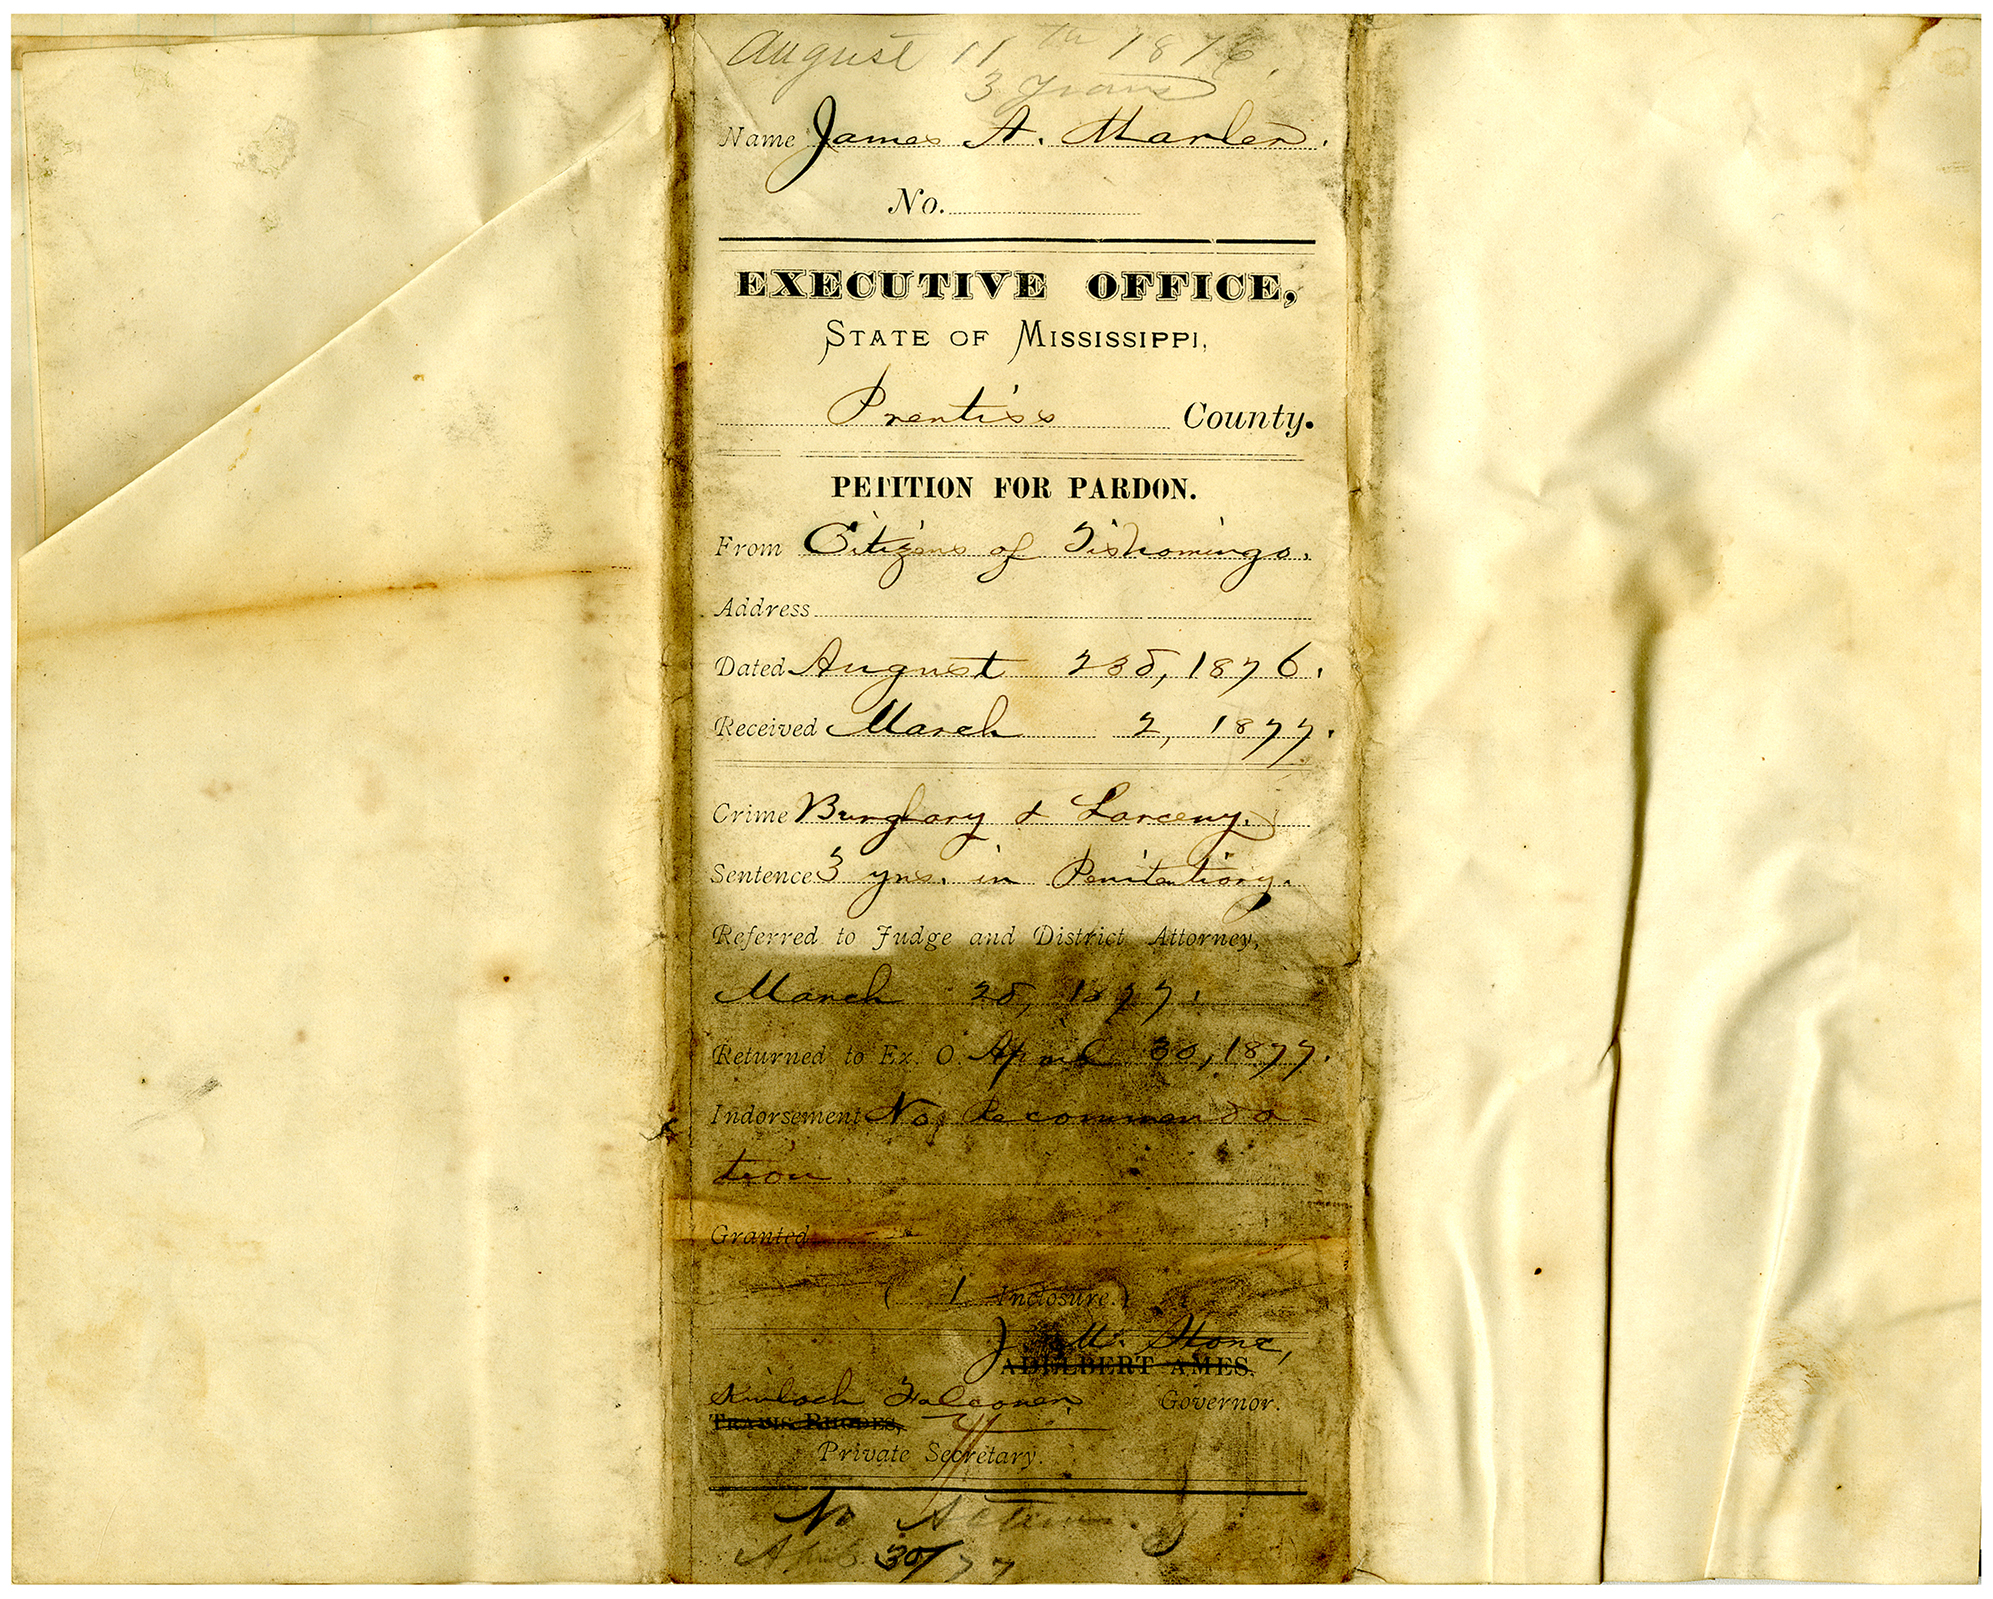 August 11th 1876.
3 Years
Name James A. Marler.
No.
EXECUTIVE OFFICE,
STATE OF MISSISSIPPI,
Prentiss County.
PETITION FOR PARDON.
From Citizens of Tishomingo.
Address
Dated August 23d, 1876.
Received March 2, 1877.
Crime Burglary & Larceny.
Sentence 3 yrs. in Penitentiary.
Referred to Judge and District Attorney,
March 28, 1877.
Returned to Ex. O. April 30, 1877.
Indorsement No Recommenda-
tion.
Granted
( 1 Inclosure.)
J. M. Stone,
ADELBERT AMES.
Kinloch Falconer Governor.
TRAVIS RHODES,
Private Secretary.
No Action.
April 30/77